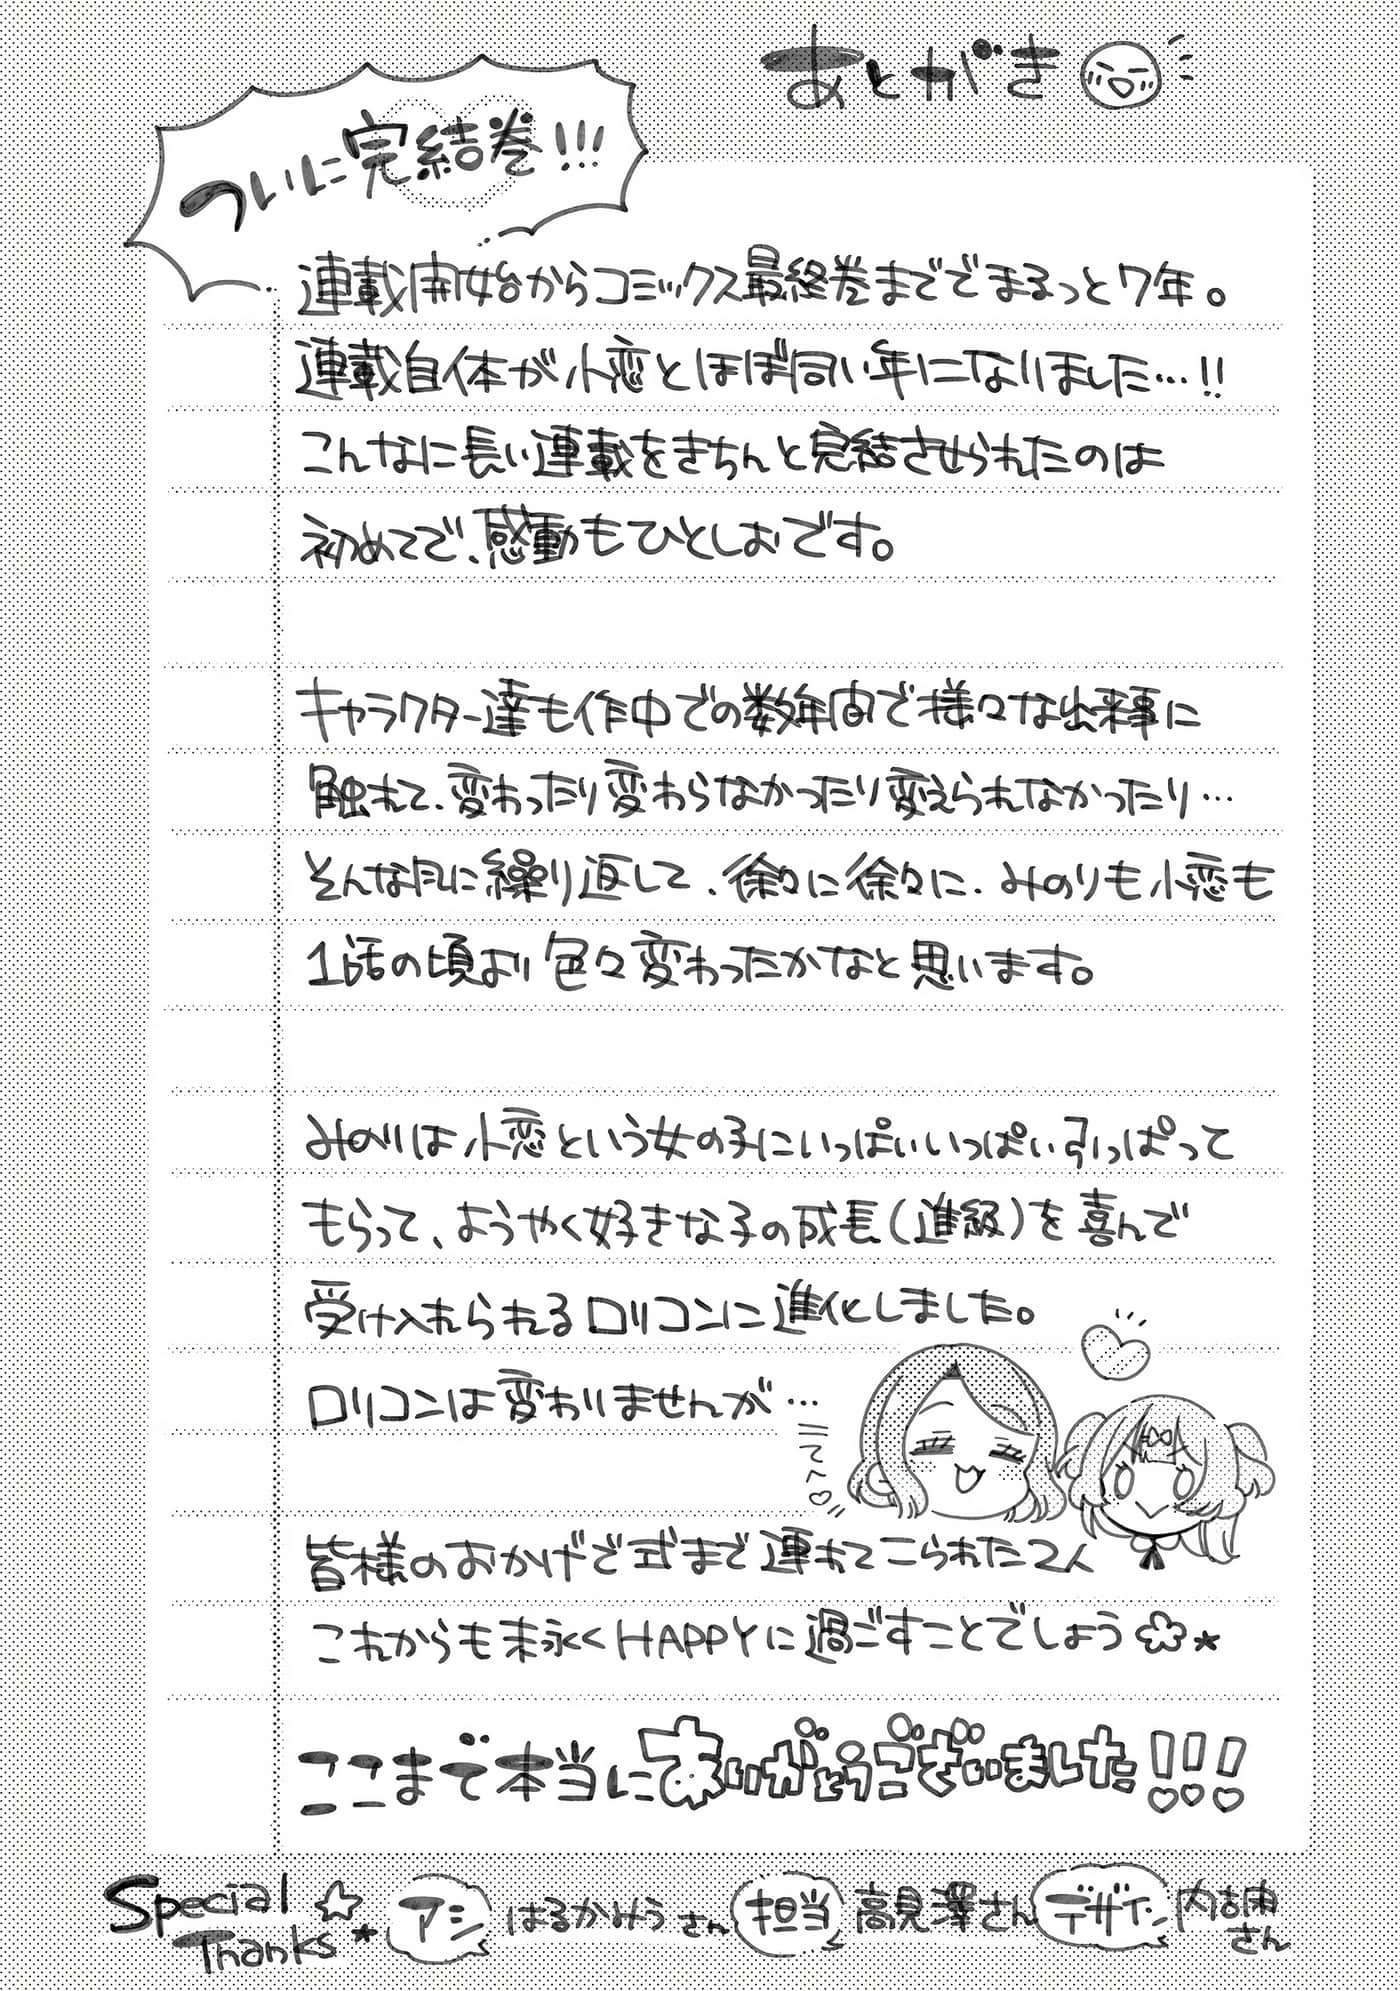 あとがき
ついに完結巻!!!
連載開始からコミックス最終巻まででまるっと7年。
連載自体が小恋とほぼ同い年になりました…!!
こんなに長い連載をきちんと完結させられたのは
初めてで、感動もひとしおです。
キャラクター達も作中での数年間で様々な出来事に
触れて、変わったり変わらなかったり変えられなかったり…
そんな風に繰り返して、徐々に徐々に、みのりも小恋も
1話の頃より色々変わったかなと思います。
みのりは小恋という女の子にいっぱいいっぱい引っぱって
もらって、ようやく好きな子の成長(進級)を喜んで
受け入れられるロリコンに進化しました。
ロリコンは変わりませんが…
てへ♡
皆様のおかげで式まで連れてこられた2人
これからも末永くHAPPYに過ごすことでしょう✿★
ここまで本当にありがとうございました!!!
Special Thanks☆★
アシ はるかみうさん
担当 高見澤さん
デザイン 内古閑さん